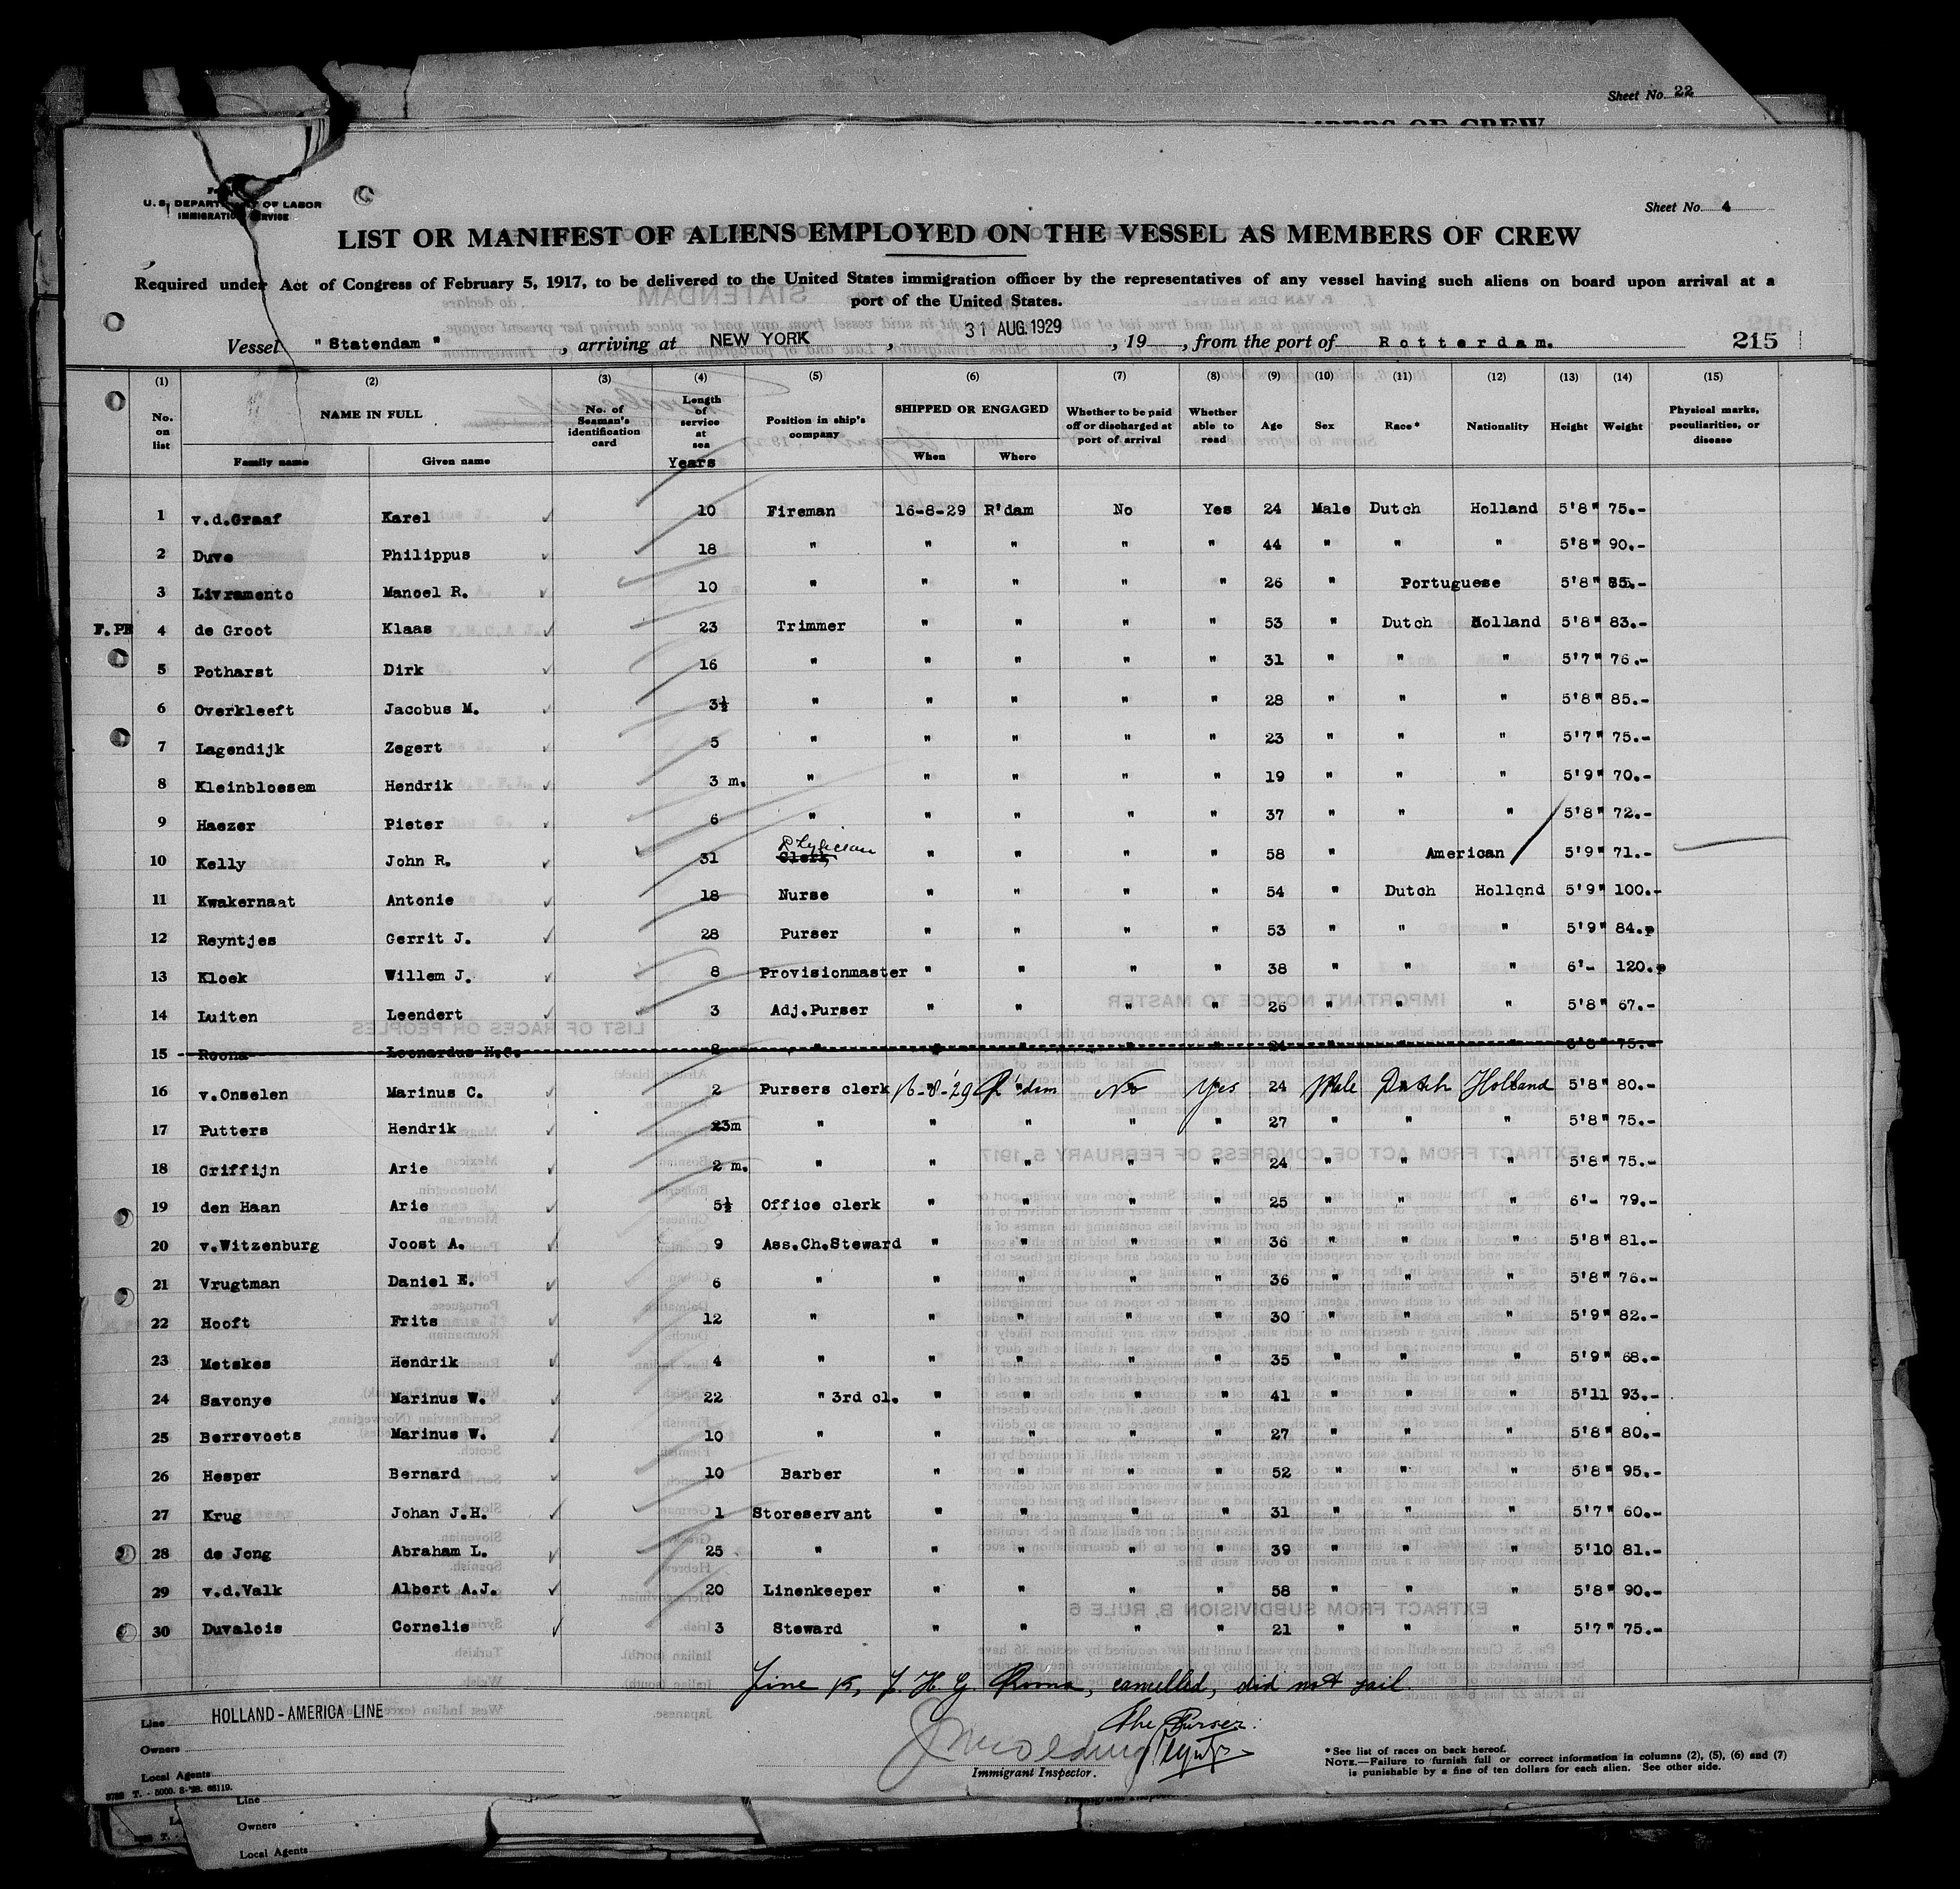 Sheet No. 22
U. S. DEPARTMENT OF LABOR
IMMIGRATION SERVICE
Sheet No. 4
LIST OR MANIFEST OF ALIENS EMPLOYED ON THE VESSEL AS MEMBERS OF CREW
Required under Act of Congress of February 5, 1917, to be delivered to the United States immigration officer by the representatives of any vessel having such aliens on board upon arrival at a
port of the United States.
Vessel "Statendam", arriving at NEW YORK, 31 AUG.1929, 19, from the port of Rotterdam. 215
(1) (2) (3) (4) (5) (6) (7) (8) (9) (10) (11) (12) (13) (14) (15)
No. on list NAME IN FULL Family name Given name No. of Seaman's identification card Length of service at sea Years Position in ship's company SHIPPED OR ENGAGED When Where Whether to be paid off or discharged at port of arrival Whether able to read Age Sex Race* Nationality Height Weight Physical marks, peculiarities, or disease
1 v.d.Graaf Karel 10 Fireman 16-8-29 R'dam No Yes 24 Male Dutch Holland 5'8" 75.-
2 Duve Philippus 18 " " " " " 44 " " " 5'8" 90.-
3 Livramento Manoel R. 10 " " " " " 26 " Portuguese 5'8" 85.-
4 de Groot Klaas 23 Trimmer " " " " 53 " Dutch Holland 5'8" 83.-
5 Potharst Dirk 16 " " " " " 31 " " " 5'7" 76.-
6 Overkleeft Jacobus M. 3½ " " " " " 28 " " " 5'8" 85.-
7 Lagendijk Zegert 5 " " " " " 23 " " " 5'7" 75.-
8 Kleinbloesem Hendrik 3 m. " " " " " 19 " " " 5'9" 70.-
9 Haezer Pieter 6 " " " " " 37 " " " 5'8" 72.-
10 Kelly John R. 31 Clerk Physician " " " " 58 " American 5'9" 71.-
11 Kwakernaat Antonie 18 Nurse " " " " 54 " Dutch Holland 5'9" 100.-
12 Reyntjes Gerrit J. 28 Purser " " " " 53 " " " 5'9" 84.-
13 Kloek Willem J. 8 Provisionmaster " " " " 38 " " " 6'- 120.-
14 Luiten Leendert 3 Adj.Purser " " " " 26 " " " 5'8" 67.-
15 Rooma Leonardus H.G. " " " " " 24 " " " 75.-
16 v.Onselen Marinus C. 2 Pursers clerk 16-8-'29 R'dam No Yes 24 Male Dutch Holland 5'8" 80.-
17 Putters Hendrik 23m " " " " " 27 " " " 5'8" 75.-
18 Griffijn Arie 2 m. " " " " " 24 " " " 5'8" 75.-
19 den Haan Arie 5½ Office clerk " " " " 25 " " " 6'- 79.-
20 v.Witzenburg Joost A. 9 Ass.Ch.Steward " " " " 36 " " " 5'8" 81.-
21 Vrugtman Daniel E. 6 " " " " " 36 " " " 5'8" 76.-
22 Hooft Frits 12 " " " " " 30 " " " 5'9" 82.-
23 Metskes Hendrik 4 " " " " " 35 " " " 5'9" 68.-
24 Savonye Marinus W. 22 " 3rd cl. " " " " 41 " " " 5'11 93.-
25 Berrevoets Marinus W. 10 " " " " " 27 " " " 5'8" 80.-
26 Hesper Bernard 10 Barber " " " " 52 " " " 5'8" 95.-
27 Krug Johan J.H. 1 Storeservant " " " " 31 " " " 5'7" 60.-
28 de Jong Abraham L. 25 " " " " " 39 " " " 5'10 81.-
29 v.d.Valk Albert A.J. 20 Linenkeeper " " " " 58 " " " 5'8" 90.-
30 Duvalois Cornelis 3 Steward " " " " 21 " " " 5'7" 75.-
Line 15, Rooma, cancelled, did not sail.
The Purser:
Line HOLLAND-AMERICA LINE
Owners
Local Agents
Immigrant Inspector.
*See list of races on back hereof.
NOTE.—Failure to furnish full or correct information in columns (2), (5), (6) and (7)
is punishable by a fine of ten dollars for each alien. See other side.
Line
Owners
Local Agents